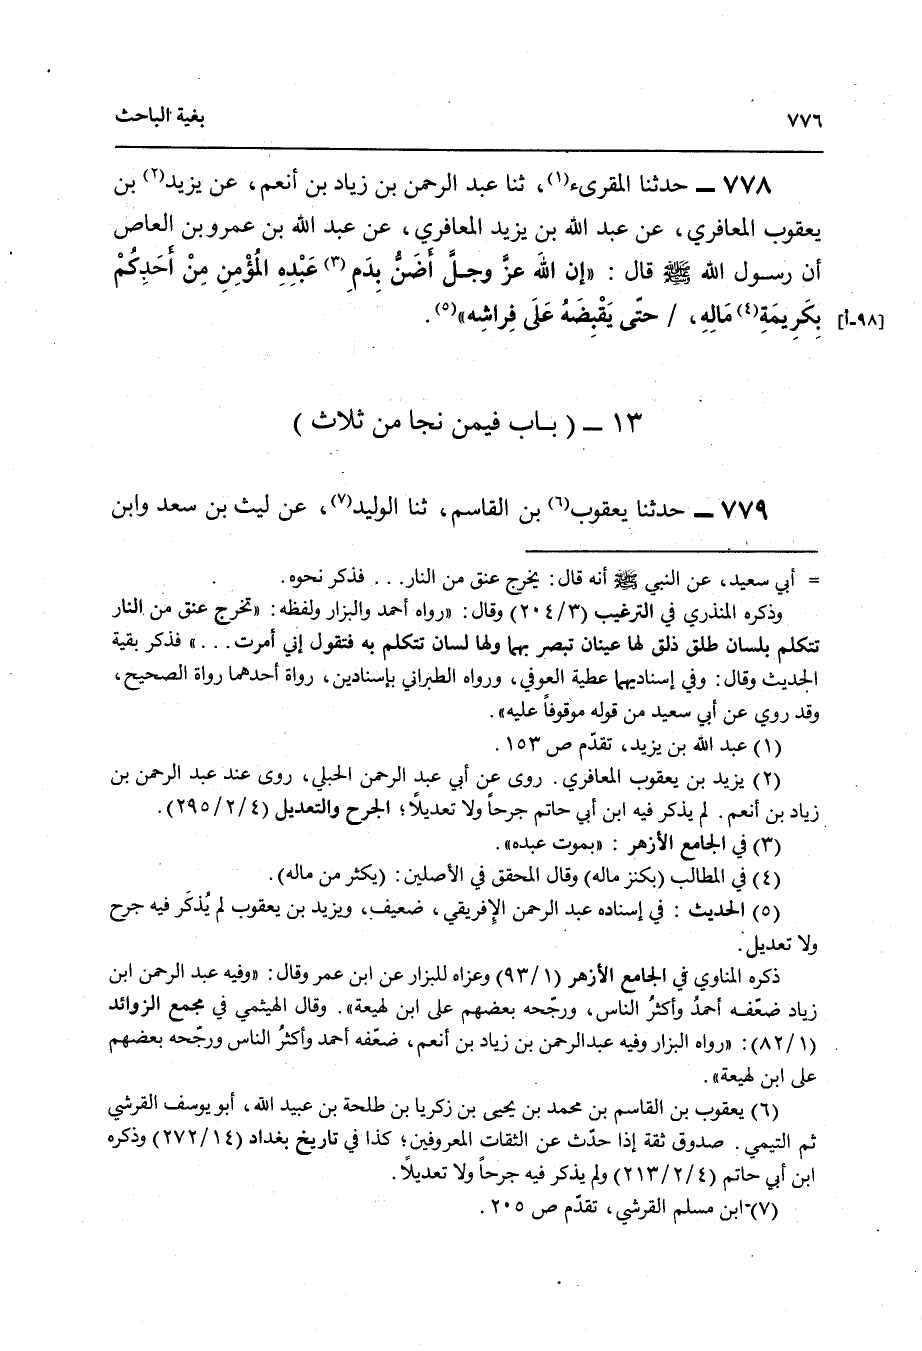 ٧٧٦ بغية الباحث
٧٧٨ ــ حدثنا المقرىء(١)، ثنا عبد الرحمن بن زياد بن أنعم، عن يزيد(٢) بن
يعقوب المعافري، عن عبد الله بن يزيد المعافري، عن عبد الله بن عمرو بن العاص
أن رسول الله ﷺ قال : «إن اللَه عزَّ وجلَّ أَضَنُّ بِدَمِ(٣) عَبْدِهِ المُؤْمِنِ مِنْ أَحَدِكُمْ
بِكَرِيمَةِ(٤) مَالِهِ، / حتّى يَقْبِضَهُ عَلَى فِراشِه»(٥). [٩٨-أ]
١٣ ــ ( باب فيمن نجا من ثلاث )
٧٧٩ ــ حدثنا يعقوب(٦) بن القاسم، ثنا الوليد(٧)، عن ليث بن سعد وابن
= أبي سعيد، عن النبي ﷺ أنه قال: يخرج عنق من النار... فذكر نحوه.
وذكره المنذري في الترغيب (٢٠٤/٣) وقال: «رواه أحمد والبزار ولفظه: «تخرج عنق من النار
تتكلم بلسان طلق ذلق لها عينان تبصر بهما ولها لسان تتكلم به فتقول إني أمرت...» فذكر بقية
الحديث وقال: وفي إسناديهما عطية العوفي، ورواه الطبراني بإسنادين، رواة أحدهما رواة الصحيح،
وقد روي عن أبي سعيد من قوله موقوفاً عليه».
(١) عبد الله بن يزيد، تقدّم ص ١٥٣.
(٢) يزيد بن يعقوب المعافري. روى عن أبي عبد الرحمن الحبلي، روى عند عبد الرحمن بن
زياد بن أنعم. لم يذكر فيه ابن أبي حاتم جرحاً ولا تعديلاً؛ الجرح والتعديل (٢٩٥/٢/٤).
(٣) في الجامع الأزهر : «بموت عبده».
(٤) في المطالب (بكنز ماله) وقال المحقق في الأصلين: (يكثر من ماله).
(٥) الحديث : في إسناده عبد الرحمن الإفريقي، ضعيف، ويزيد بن يعقوب لم يُذكَر فيه جرح
ولا تعديل.
ذكره المناوي في الجامع الأزهر (٩٣/١) وعزاه للبزار عن ابن عمر وقال: «وفيه عبد الرحمن ابن
زياد ضعّفه أحمدُ وأكثرُ الناس، ورجّحه بعضهم على ابن لهيعة». وقال الهيثمي في مجمع الزوائد
(٨٢/١): «رواه البزار وفيه عبدالرحمن بن زياد بن أنعم، ضعّفه أحمد وأكثرُ الناس ورجّحه بعضهم
على ابن لهيعة».
(٦) يعقوب بن القاسم بن محمد بن يحيى بن زكريا بن طلحة بن عبيد الله، أبو يوسف القرشي
ثم التيمي. صدوق ثقة إذا حدّث عن الثقات المعروفين؛ كذا في تاريخ بغداد (٢٧٢/١٤) وذكره
ابن أبي حاتم (٢١٣/٢/٤) ولم يذكر فيه جرحاً ولا تعديلاً.
(٧) ابن مسلم القرشي، تقدّم ص ٢٠٥.